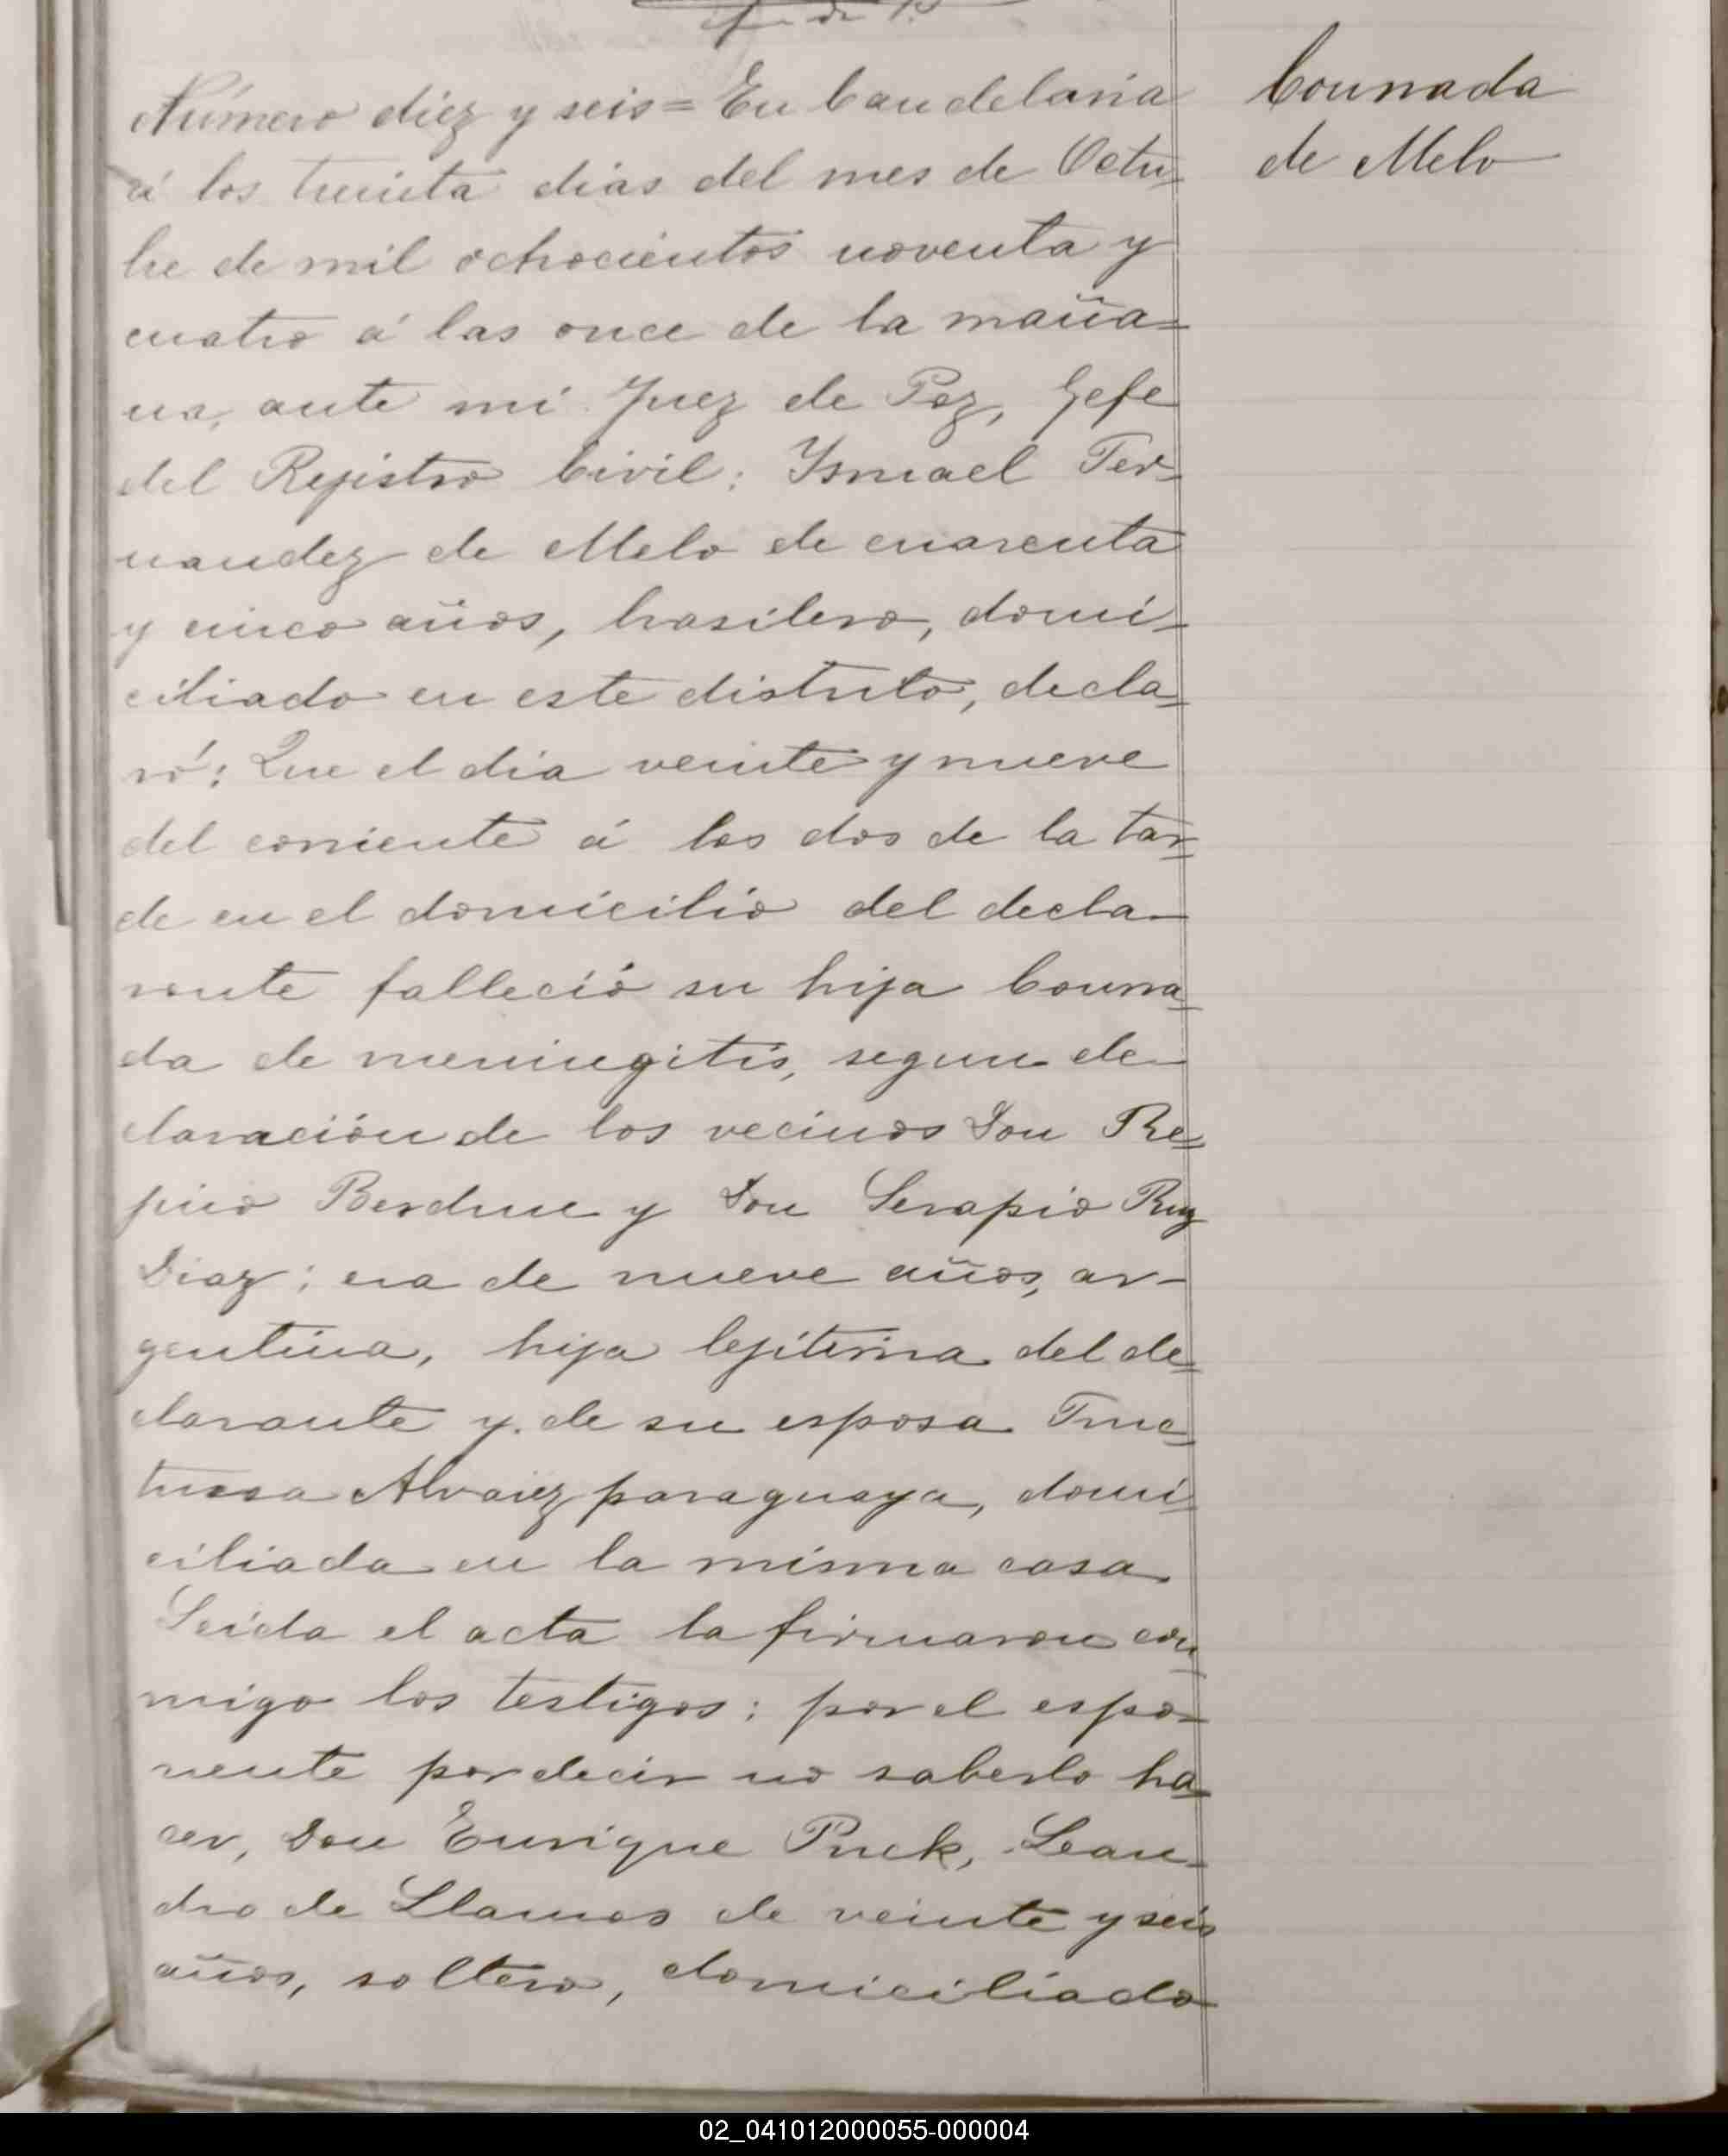 Número diez y seis = En Candelaria
á los treinta dias del mes de Octu-
bre de mil ochocientos noventa y
cuatro á las once de la maña=
na, ante mi Juez de Paz, Gefe
del Rejistro Civil: Ismael Fer-
nandez de Melo de cuarenta
y cinco años, brasilero, domi-
ciliado en este distrito, decla-
ró: Que el dia veinte y nueve
del corriente á las dos de la tar-
de en el domicilio del decla-
rante falleció su hija Conra-
da de meningitis, segun de-
claración de los vecinos Don
Berdun y Don Serapio Ruz
Diaz; era de nueve años, ar-
gentina, hija lejitima del de-
clarante y de su esposa Fruc-
tuosa Alvarez paraguaya, domi-
ciliada en la misma casa
Leida el acta la firmaron con
migo los testigos; por el espo-
nente por decir no saberlo ha-
cer, Don Enrique Puck, Lean-
dro de Llamas de veinte y seis
años, soltero, domiciliado
Conrada
de Melo
02_041012000055-000004